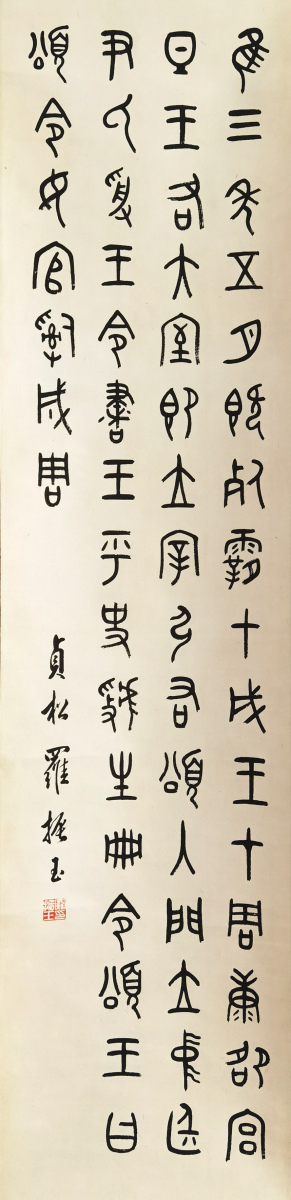 隹三年五月既死霸甲戌王才周康卲宮
旦王各大室即立宰弘右頌入門立中廷
尹氏受王令書王乎史虢生冊令頌王曰
頌令女官𤔲成周
貞松羅振玉